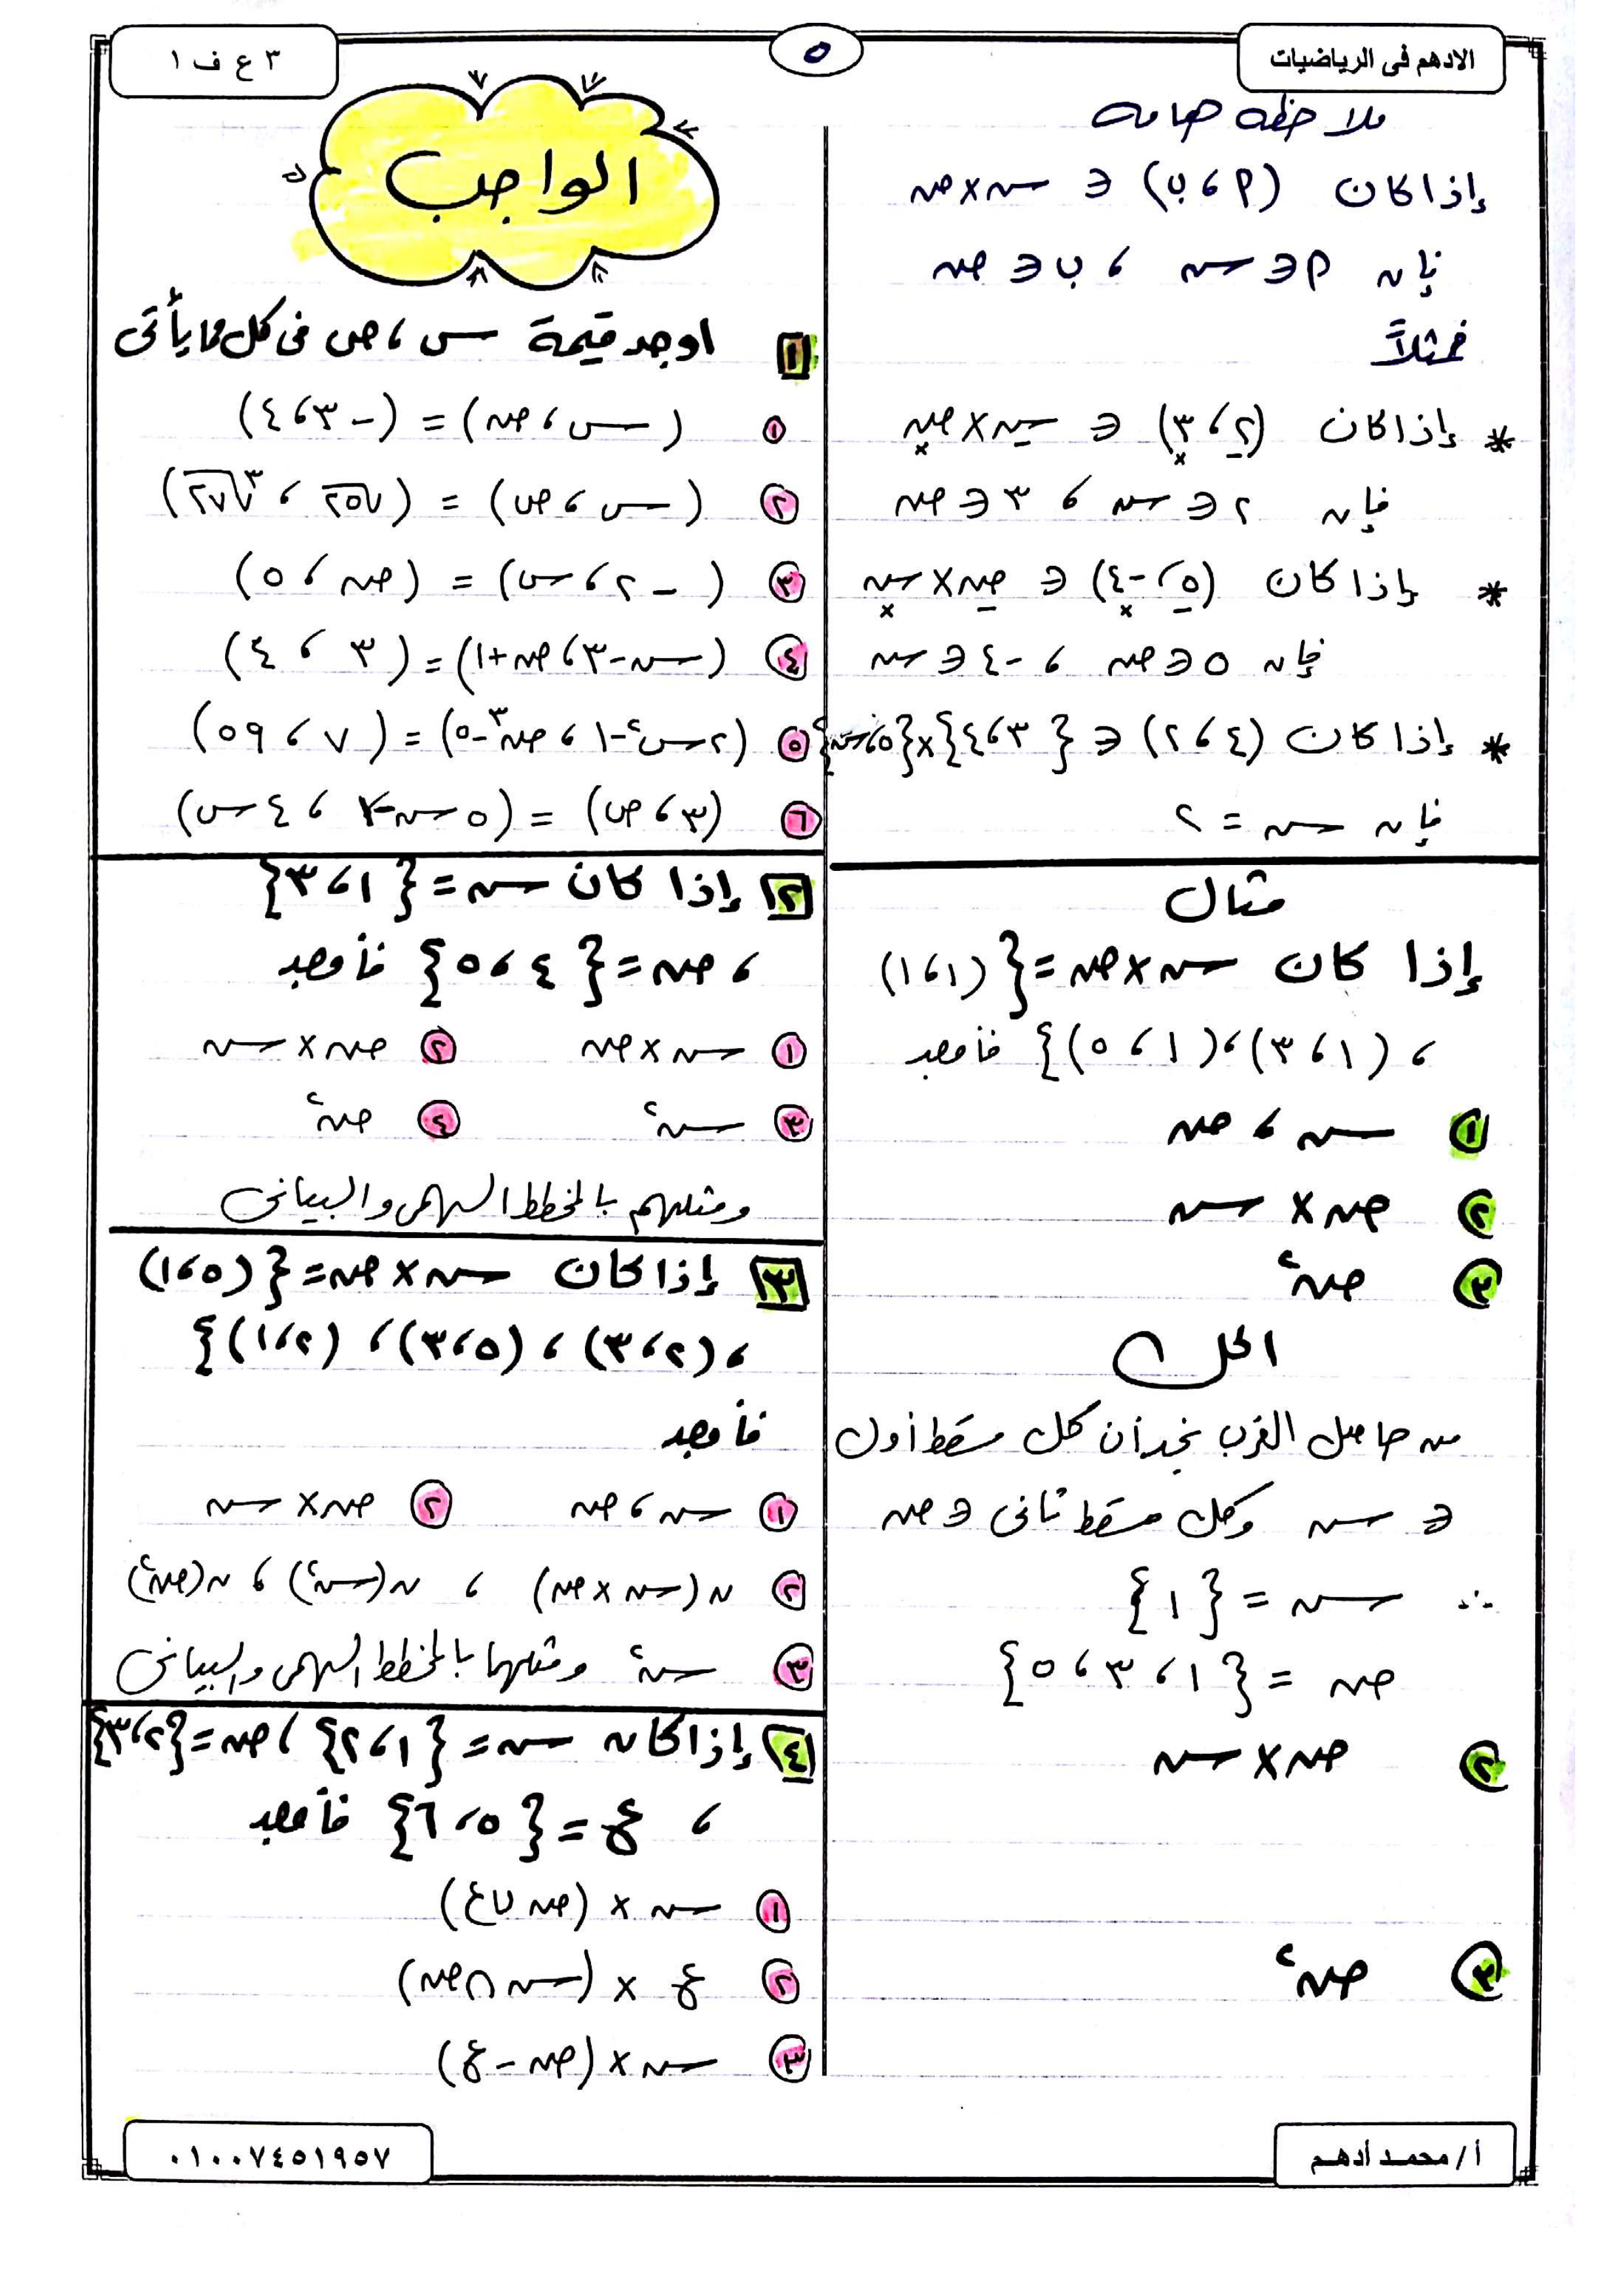 الادهم فى الرياضيات
٥
٣ ع ف ١
ملاحظه هامه
إذا كان (أ ، ب) ∈ س × ص
فإن أ ∈ س ، ب ∈ ص
فمثلاً
* إذا كان (٢ ، ٣) ∈ س × ص
فإن ٢ ∈ س ، ٣ ∈ ص
* إذا كان (٥ ، -٤) ∈ ص × س
فإن ٥ ∈ ص ، -٤ ∈ س
* إذا كان (٤ ، ٢) ∈ {٣ ، ٤} × {٥ ، س}
فإن س = ٢
مثال
إذا كان س × ص = {(١ ، ١)
، (١ ، ٣) ، (١ ، ٥)} فأوجد
١ س ، ص
٢ ص × س
٣ ص²
الحل
من حاصل الضرب نجد أن كل مسقط أول
∈ س وكل مسقط ثانى ∈ ص
∴ س = {١}
ص = {١ ، ٣ ، ٥}
٢ ص × س
٣ ص²
الواجب
١ اوجد قيمة س ، ص فى كل مما يأتى
١ (س ، ص) = (-٣ ، ٤)
٢ (س ، ص) = (√٢٥ ، ∛٢٧)
٣ (-٢ ، س) = (ص ، ٥)
٤ (س - ٣ ، ص + ١) = (٣ ، ٤)
٥ (٢س² - ١ ، ص³ - ٥) = (٧ ، ٥٩)
٦ (٣ ، ص) = (٥س - ٢ ، ٤س)
٢ إذا كان س = {١ ، ٣}
، ص = {٤ ، ٥} فأوجد
١ س × ص ٢ ص × س
٣ س² ٤ ص²
ومثلهم بالمخطط السهمى والبيانى
٣ إذا كان س × ص = {(٥ ، ١)
، (٢ ، ٣) ، (٥ ، ٣) ، (٢ ، ١)}
فأوجد
١ س ، ص ٢ ص × س
٢ ن(س × ص) ، ن(س²) ، ن(ص²)
٣ س² ومثلها بالمخطط السهمى والبيانى
٤ إذا كان س = {١ ، ٢} ، ص = {٢ ، ٣}
، ع = {٥ ، ٦} فأوجد
١ س × (ص ∪ ع)
٢ ع × (س ∩ ص)
٣ س × (ص - ع)
أ/ محمد أدهم
٠١٠٠٧٤٥١٩٥٧